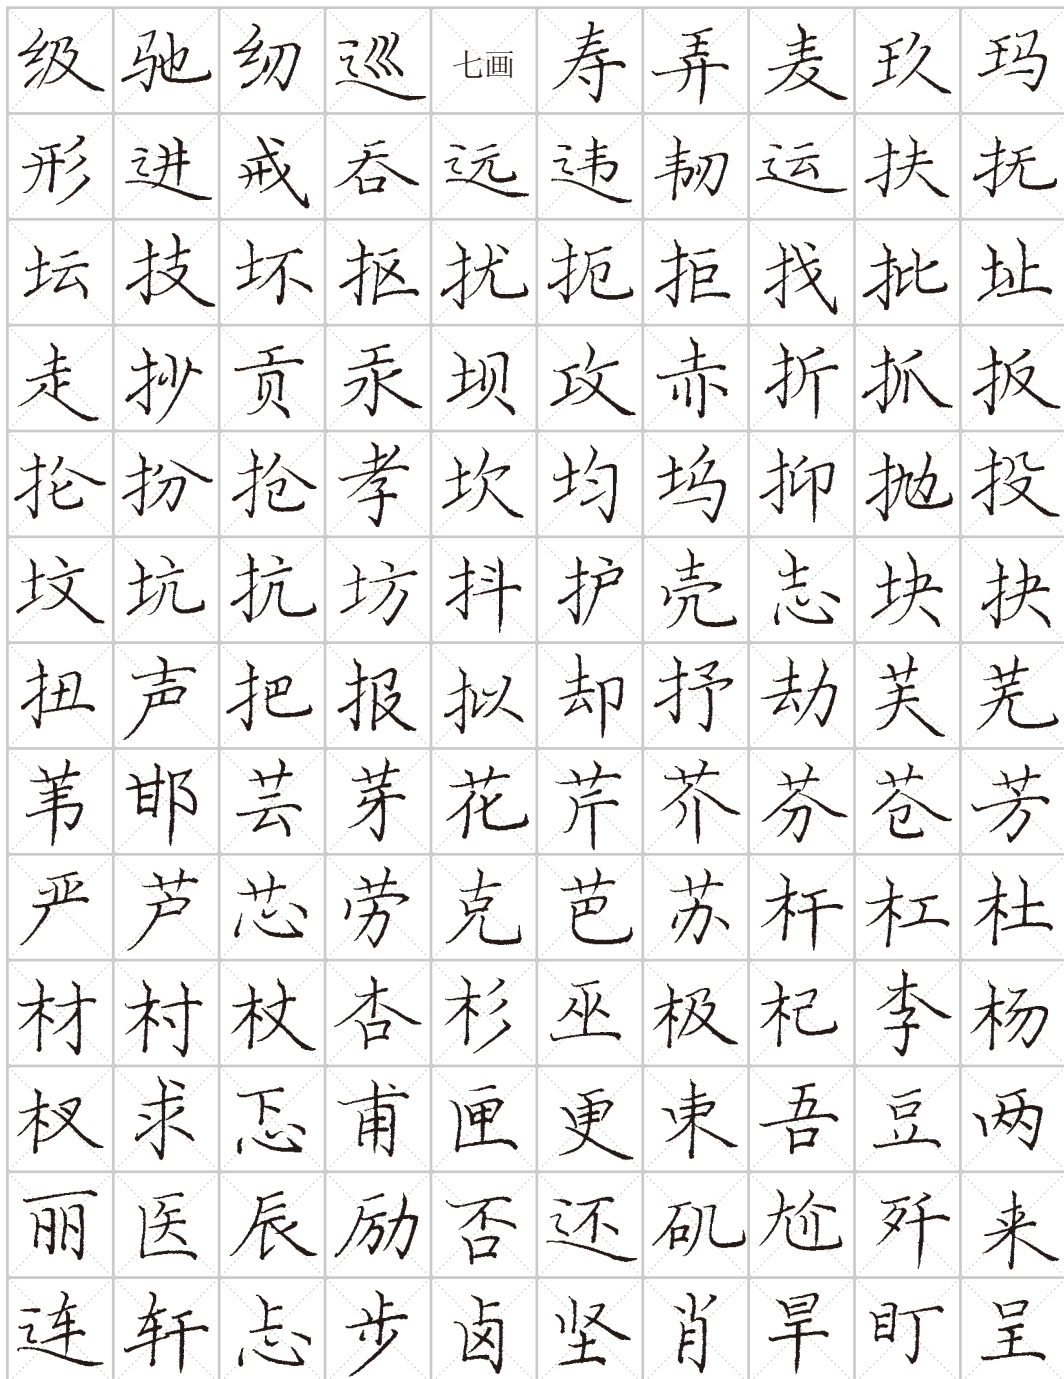 级驰纫巡七画寿弄麦玖玛
形进戒吞远违韧运扶抚
坛技坏抠扰扼拒找批址
走抄贡汞坝攻赤折抓扳
抡扮抢孝坎均坞抑抛投
坟坑抗坊抖护壳志块抉
扭声把报拟却抒劫芙芜
苇邯芸芽花芹芥芬苍芳
严芦芯劳克芭苏杆杠杜
材村杖杏杉巫极杞李杨
杈求忑甫匣更束吾豆两
丽医辰励否还矶尬歼来
连轩忐步卤坚肖旱盯呈